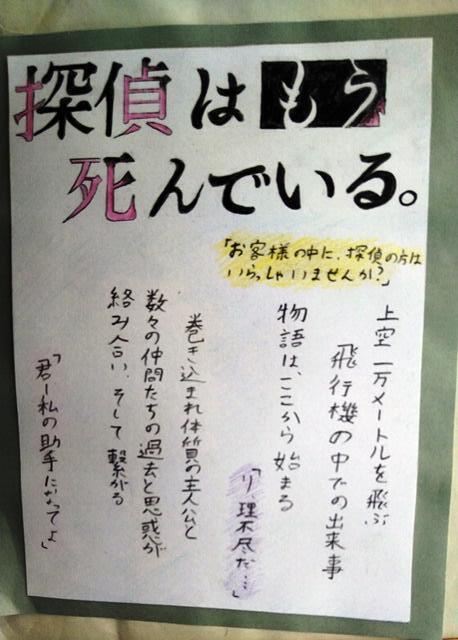 探偵はもう
死んでいる。
「お客様の中に、探偵の方は
いらっしゃいませんか?」
上空一万メートルを飛ぶ
飛行機の中での出来事
物語は、ここから始まる
「り、理不尽だ…」
巻き込まれ体質の主人公と
数々の仲間たちの過去と思惑が
絡み合い、そして繋がる
「君ー私の助手になってよ」